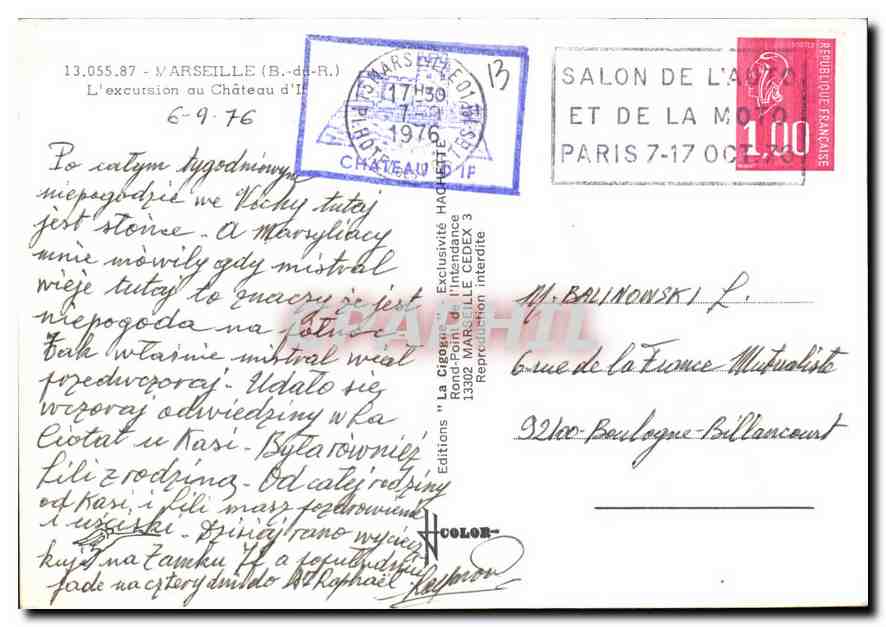 13.055.87 - MARSEILLE (B.-du-R.)
L'excursion au Château d'If
6-9.76
Po całym tygodniowym
niepogodzie we Vichy tutaj
jest słońce. - A Marsyliacy
mnie mówiły gdy mistral
wieje tutaj to znaczy że jest
niepogoda na północ.
Tak właśnie mistral wiał
przedwczoraj. Udało się
wczoraj odwiedziny w La
Ciotat u Kasi - Była również
Lili z rodziną. Od całej rodziny
od Kasi, i Lili masz pozdrowienie
i uściski. Dzisiaj rano wyciecz
kuję na Zamku If a popołudniu
jade na cztery dni do St Raphaël
Raymond
13 MARSEILLE 01
17H30
7-9
1976
CHATEAU D'IF
13
SALON DE L'AUTO
ET DE LA MOTO
PARIS 7-17 OCT. 76
REPUBLIQUE FRANÇAISE
1,00
Editions "La Cigogne" - Exclusivité HACHETTE
Rond-Point de l'Intendance
13302 MARSEILLE CEDEX 3
Reproduction interdite
COLOR
M. BALINOWSKI L.
6 rue de la France Mutualiste
92100 - Boulogne-Billancourt
CPARHIL